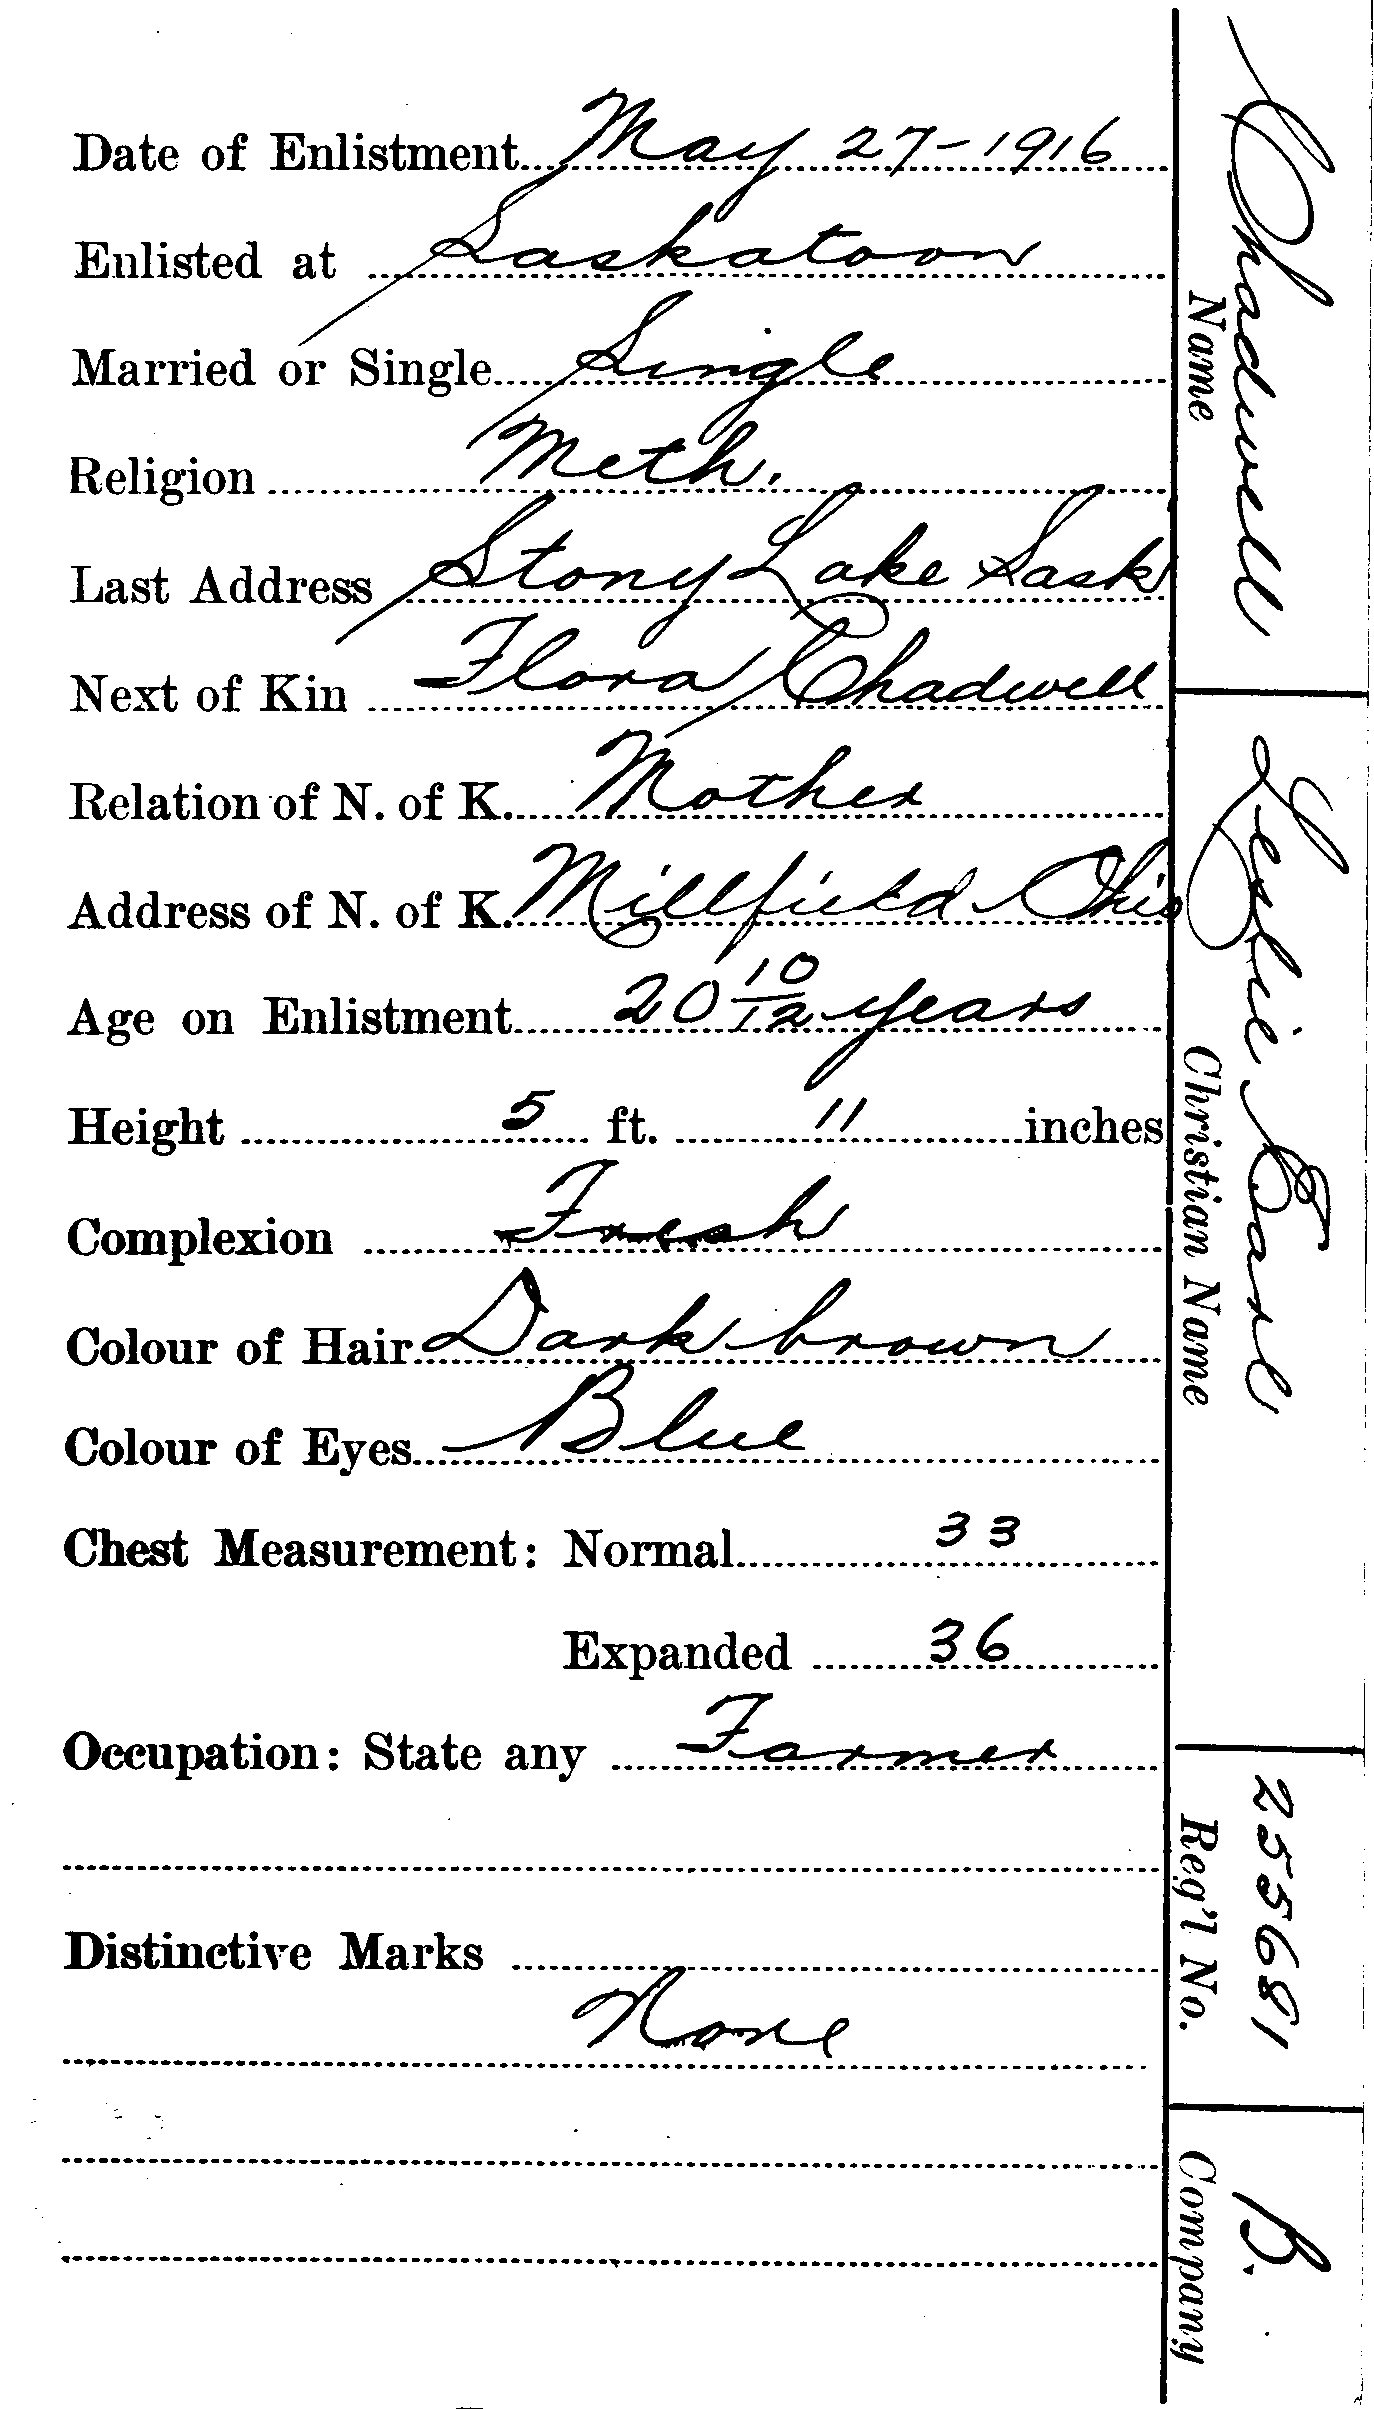 Date of Enlistment May 27-1916
Enlisted at Saskatoon
Married or Single Single
Religion Meth.
Last Address Stony Lake Sask
Next of Kin Flora Chadwell
Relation of N. of K. Mother
Address of N. of K. Millfield Ohio
Age on Enlistment 20 10/12 years
Height 5 ft. 11 inches
Complexion Fresh
Colour of Hair Dark brown
Colour of Eyes Blue
Chest Measurement: Normal 33
Expanded 36
Occupation: State any Farmer
Distinctive Marks
None
Chadwell
Name
Leslie Earl
Christian Name
255681
Reg'l No.
B.
Company